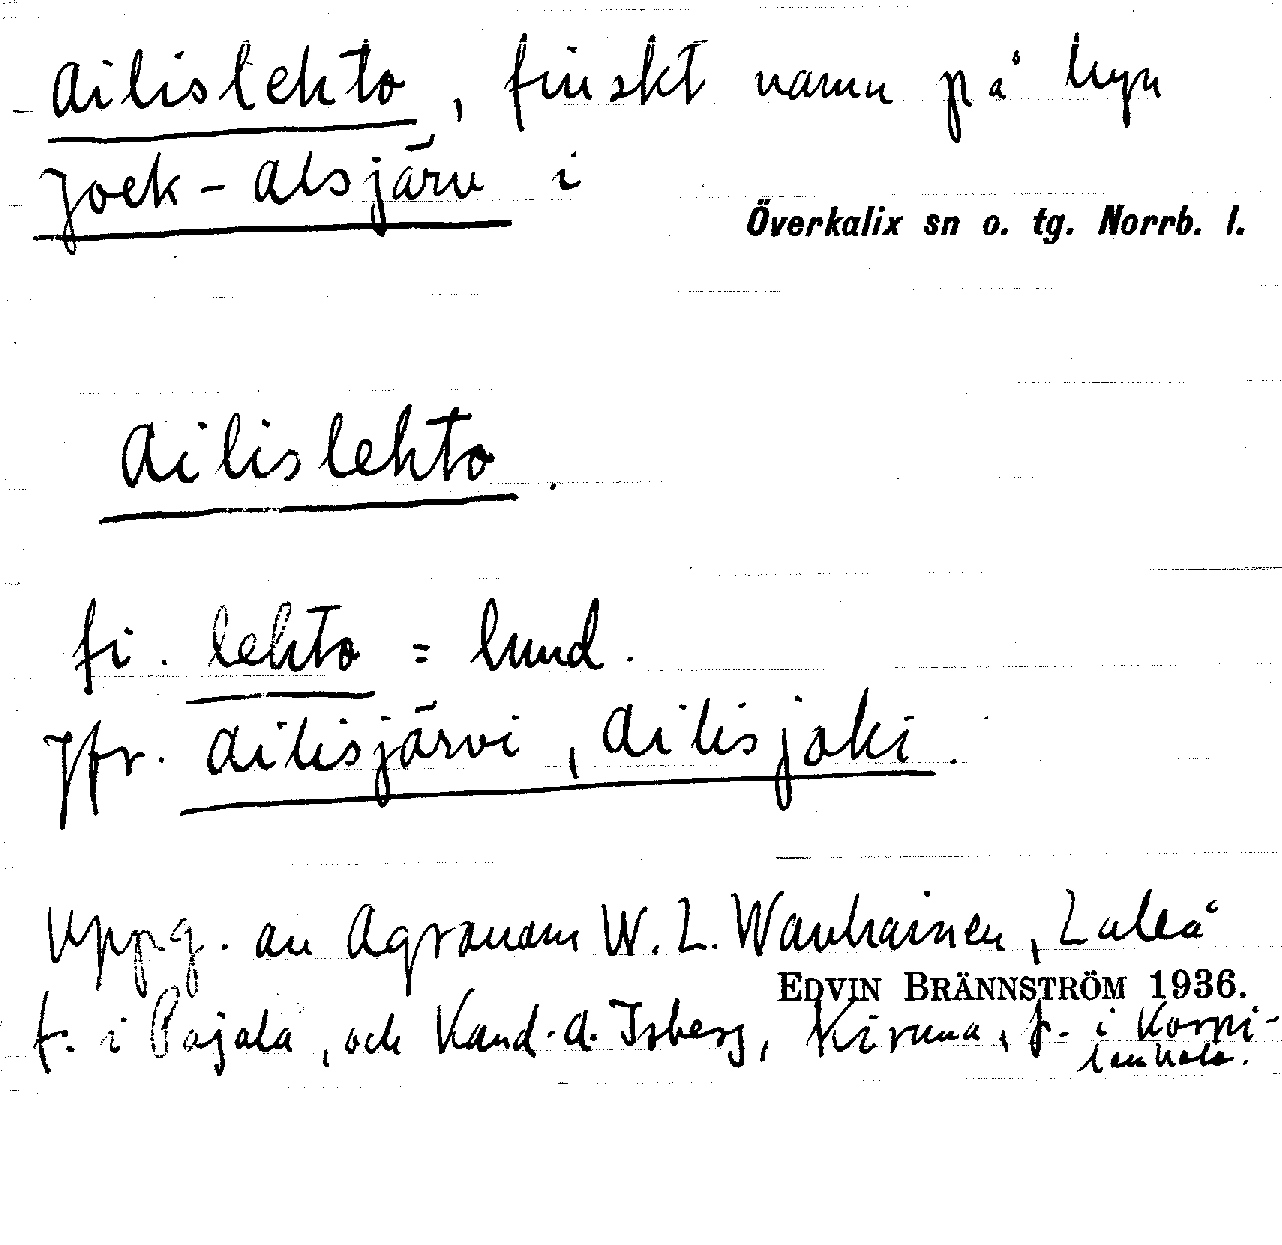 Ailislehto, finskt namn på byn
Jock-Alsjärv i
Överkalix sn o. tg. Norrb. l.
Ailislehto.
fi. lehto = lund.
Jfr. Ailisjärvi, Ailisjoki.
Uppg. av Agronom W. L. Wanhainen, Luleå
EDVIN BRÄNNSTRÖM 1936.
f. i Pajala, och Kand. A. Isberg, Kiruna, f. i Korpi-
lombolo.